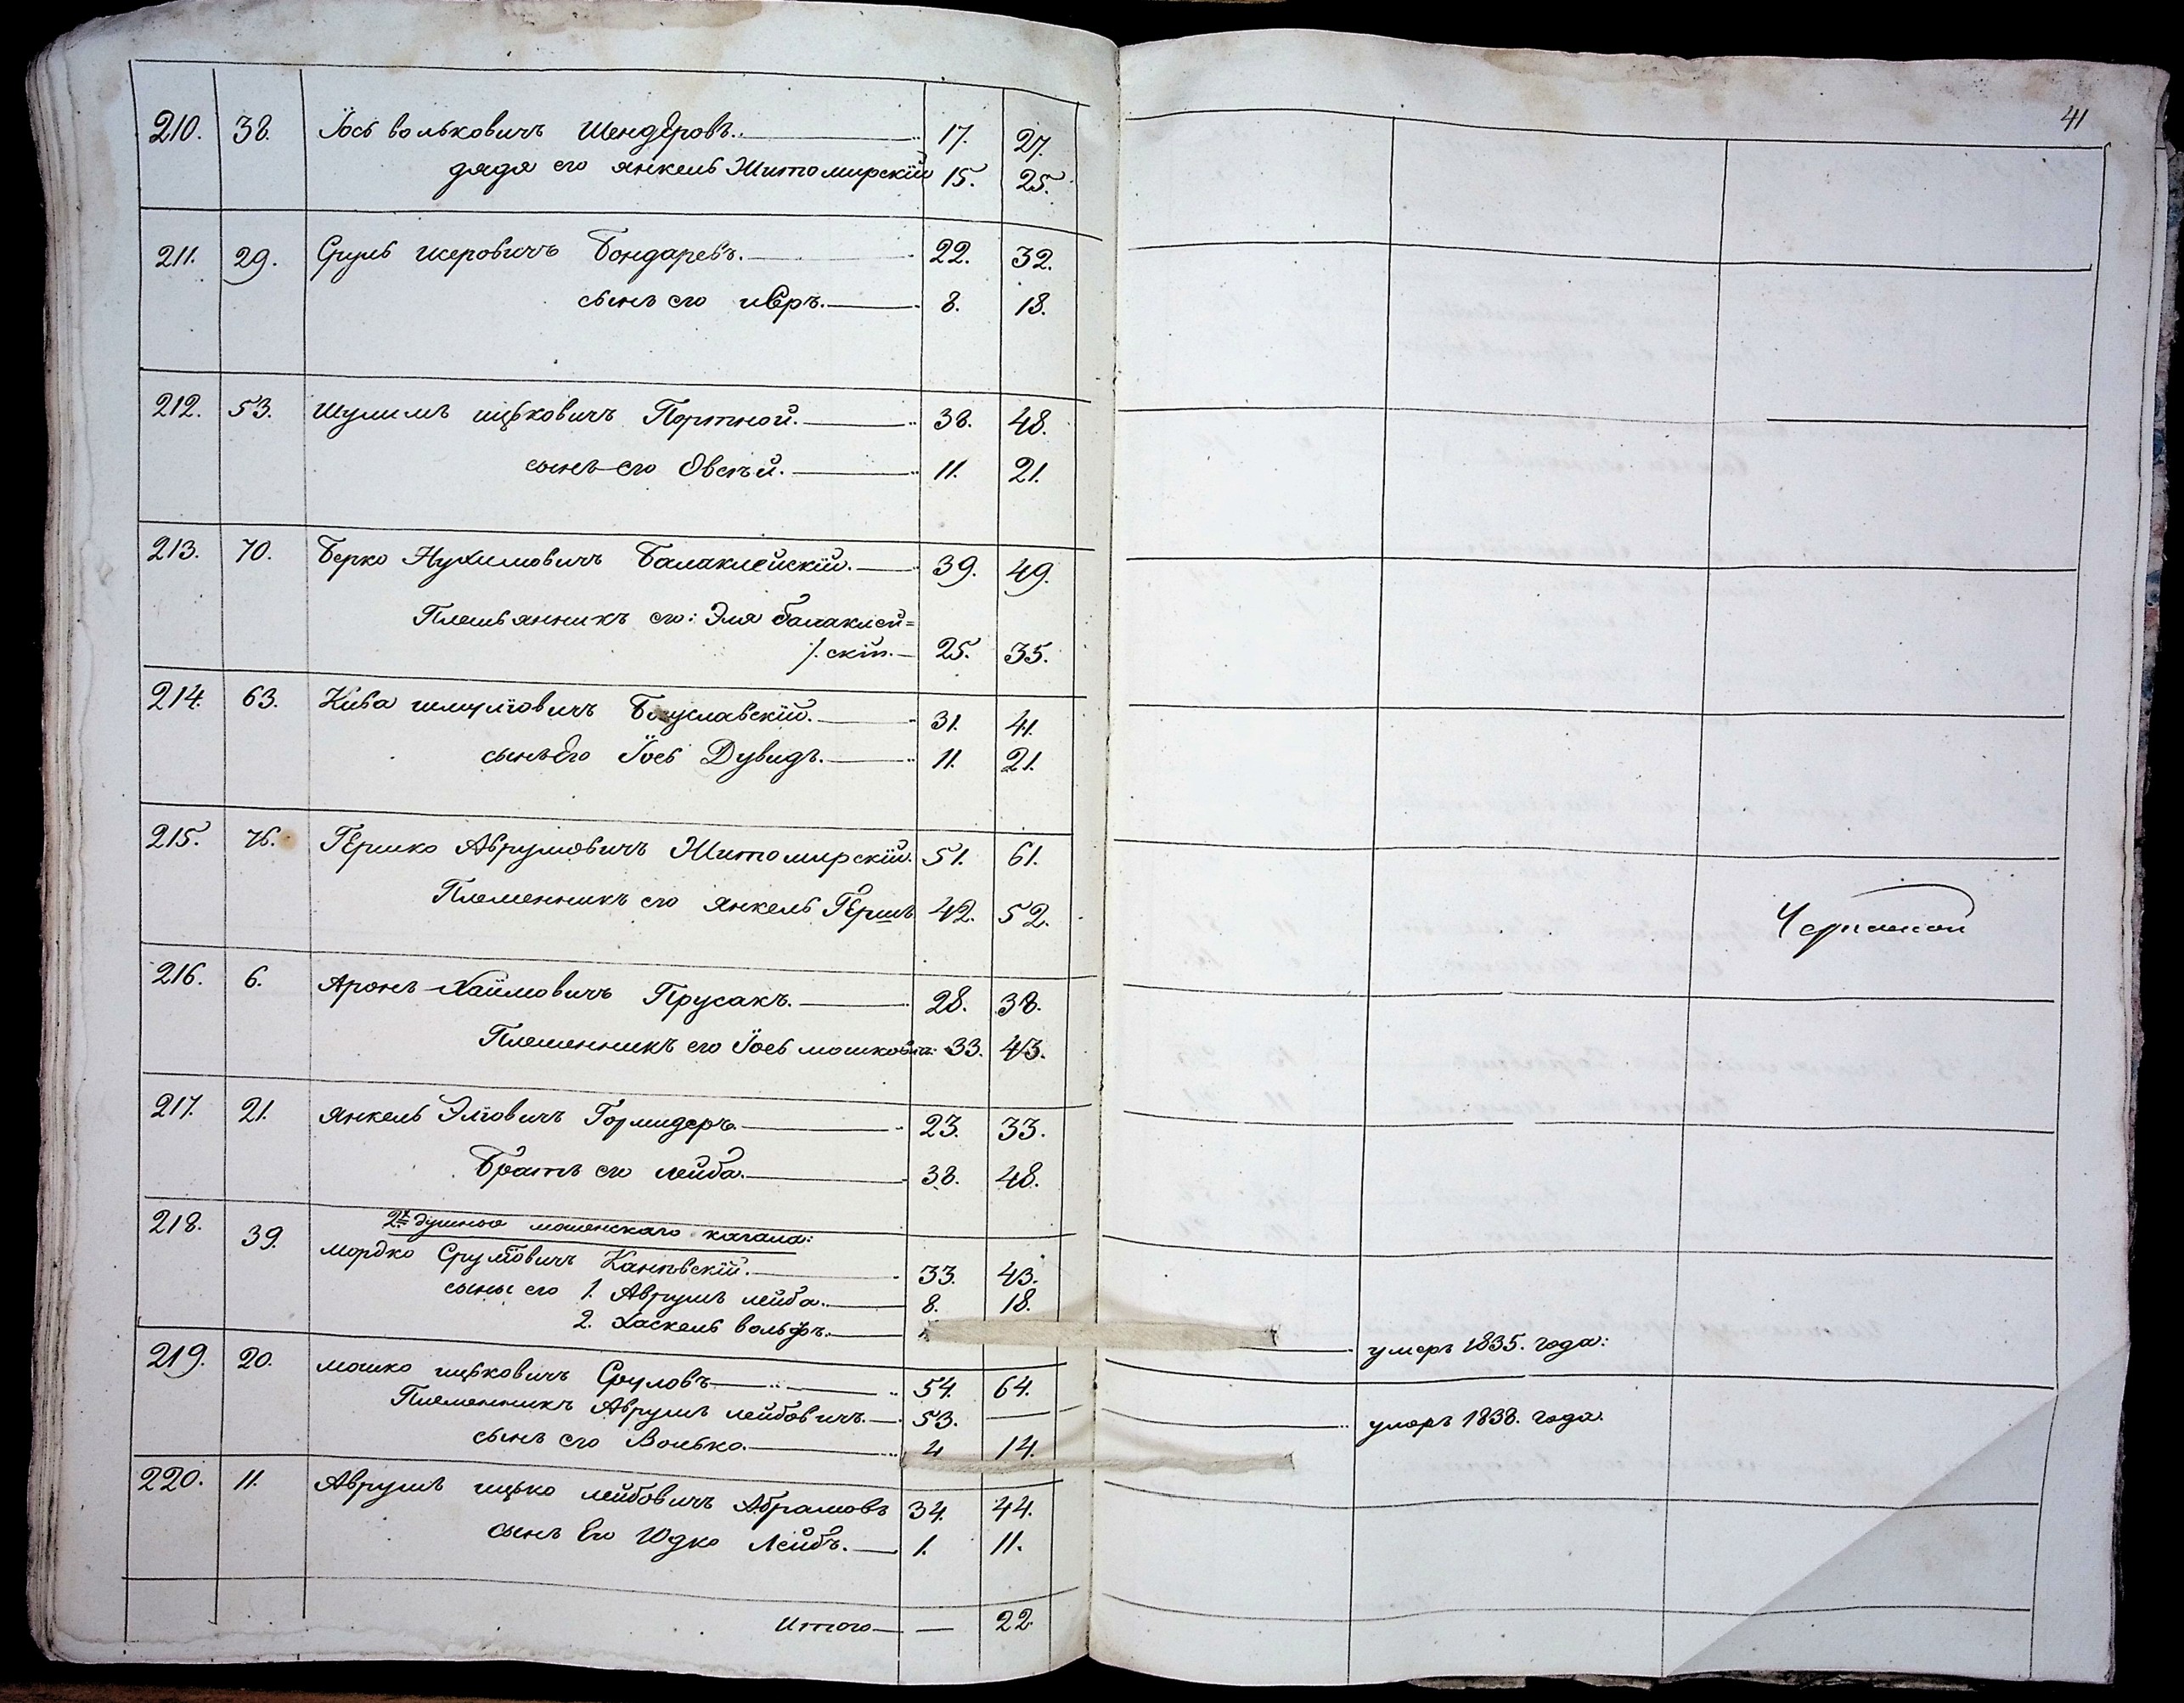 41
210. 38. Іось вольковичъ Шендеровъ. 17. 27.
дядя его янкель Житомирскій 15. 25.
211. 29. Сруль шеровичъ Бондаревъ. 22. 32.
сынъ его 8. 18.
212. 53. Шулимъ ицковичъ Портной. 38. 48.
сынъ его Овсѣй. 11. 21.
213. 70. Берко Нухимовичъ Балаклейскій. 39. 49.
Племьянникъ его: Эля балаклей=
скій. 25. 35.
214. 63. Кива шмуліовичъ Богуславскій. 31. 41.
сынъ Его Іось Дувидъ. 11. 21.
215. 76. Гершко Аврумовичъ Житомирскій. 51. 61.
Племенникъ его янкель Гершъ 42. 52.
216. 6. Аронъ Хаймовичъ Прусакъ. 28. 38.
Племенникъ его Іось мошковичъ: 33. 43.
217. 21. янкель Эліовичъ 23. 33.
Братъ его лейба. 38. 48.
218. 39. кагала:
мордко Сруліовичъ Каневскій. 33. 43.
сыны его 1. Аврумъ лейба. 8. 18.
2. Хаскель вольфъ. умеръ 1835. года:
219. 20. мошко ицьковичъ Сруловъ 54. 64.
Племенникъ Аврумъ лейбовичъ. 53. — умеръ 1838. года.
сынъ его Волько. 4 14.
220. 11. Аврумъ ицько лейбовичъ Абрамовъ 34. 44.
сынъ Его Юдко Лейбъ. 1. 11.
Итого — 22